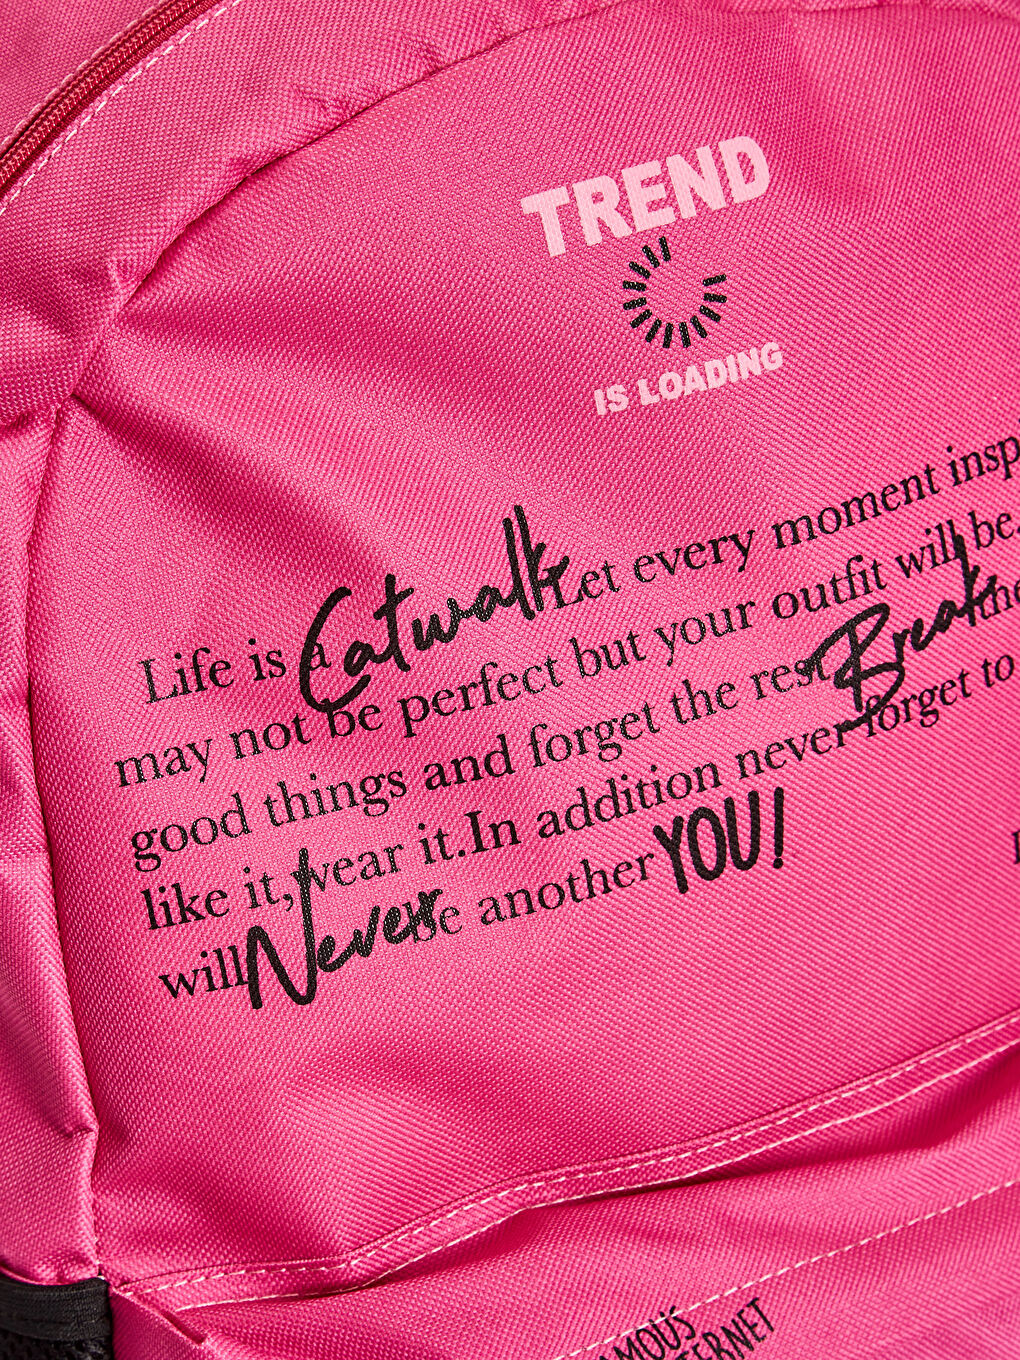 TREND
IS LOADING
Life is a Catwalk Let every moment
may not be perfect but your outfit will be.
good things and forget the rest Break the
like it, wear it.In addition never forget to
will Never be another YOU!